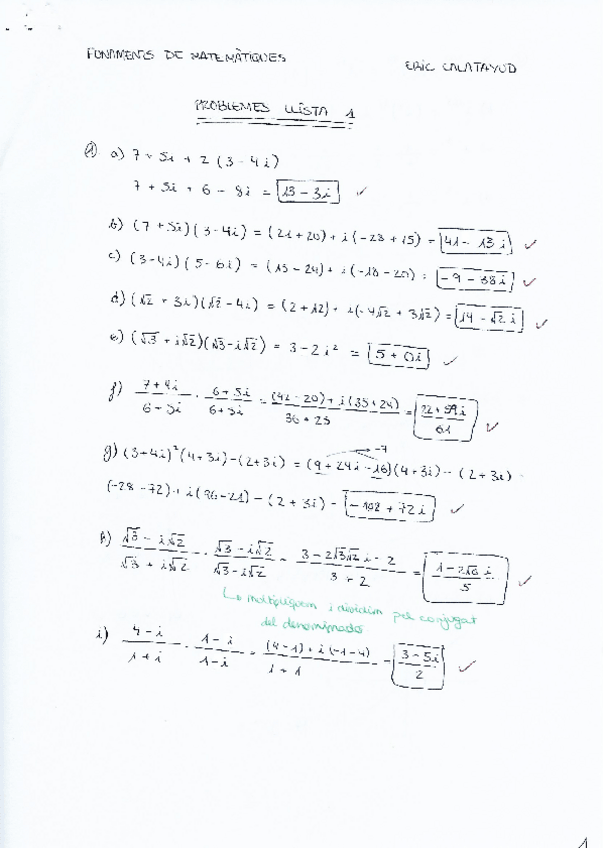 FONAMENTS DE MATEMÀTIQUES
ERIC CALATAYUD
PROBLEMES LLISTA 1
1) a) 7 + 5i + 2 (3 - 4i)
7 + 5i + 6 - 8i = 13 - 3i ✓
b) (7 + 5i)(3 - 4i) = (21 + 20) + i(-28 + 15) = 41 - 13i ✓
c) (3 - 4i)(5 - 6i) = (15 - 24) + i(-18 - 20) = -9 - 38i ✓
d) (√2 + 3i)(√2 - 4i) = (2 + 12) + i(-4√2 + 3√2) = 14 - √2 i ✓
e) (√3 + i√2)(√3 - i√2) = 3 - 2i² = 5 + 0i ✓
f) (7 + 4i)/(6 - 5i) · (6 + 5i)/(6 + 5i) = ((42 - 20) + i(35 + 24))/(36 + 25) = (22 + 59i)/61 ✓
-7
g) (3 + 4i)² (4 + 3i) - (2 + 3i) = (9 + 24i - 16)(4 + 3i) - (2 + 3i) =
(-28 - 72) + i(96 - 21) - (2 + 3i) = -102 + 72i ✓
h) (√3 - i√2)/(√3 + i√2) · (√3 - i√2)/(√3 - i√2) = (3 - 2√3√2 i - 2)/(3 + 2) = (1 - 2√6 i)/5 ✓
↳ multipliquem i dividim pel conjugat
del denominador
i) (4 - i)/(1 + i) · (1 - i)/(1 - i) = ((4 - 1) + i(-1 - 4))/(1 + 1) = (3 - 5i)/2 ✓
1